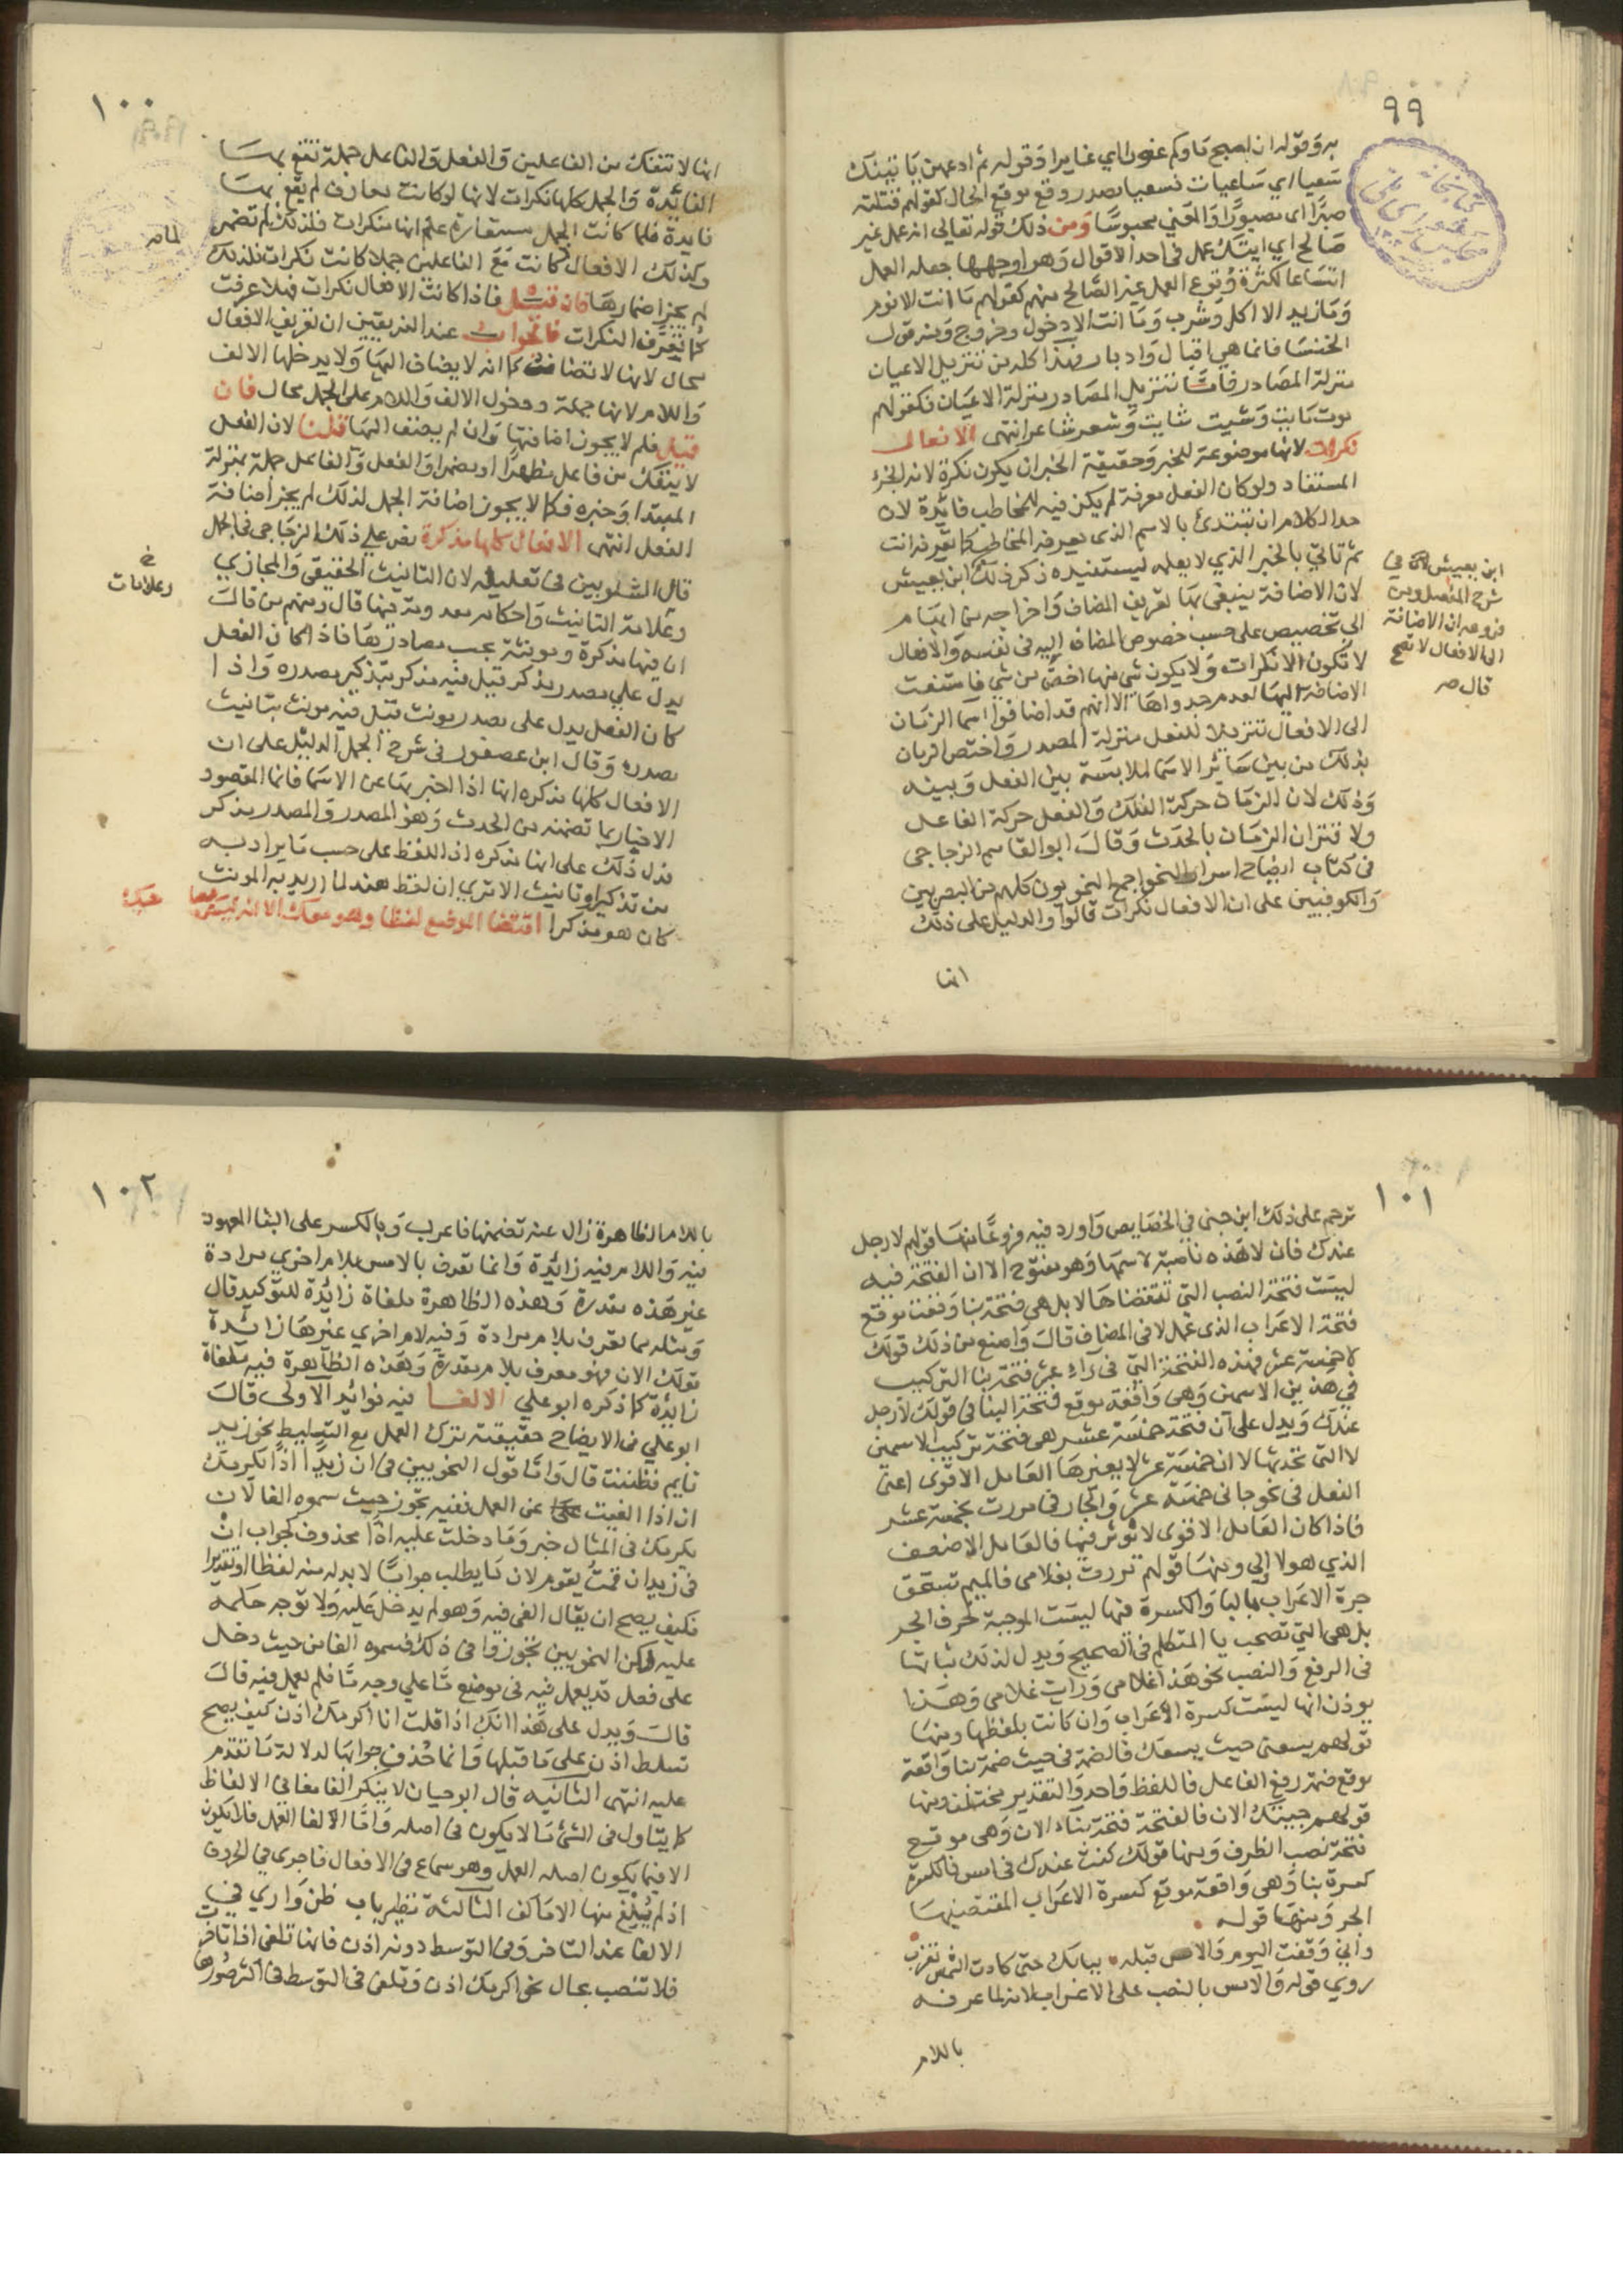 ٩٩
به وقوله ان اصبح ماوكم غورا اي غايرا وقوله ثم ادعهن ياتينك
سعيا اي ساعيات فسعيا مصدر وقع موقع الحال كقولهم قتلته
صبرا اى مصبورا والمعني محبوسا ومن ذلك قوله تعالى انه عمل غير
صالح اي ابنك عمل فى احد الاقوال وهو اوجهها جعله العمل
اتساعا لكثرة وقوع العمل غير الصالح منهم كقولهم ما انت الا نوم
وما زيد الا اكل وشرب وما انت الا دخول وخروج ومنه قول
الخنسا فانما هي اقبال وادبار وهذا كله من تنزيل الاعيان
منزلة المصادر فاما تنزيل المصادر منزلة الاعيان فكقولهم
موت مايت وشيب شايب وشعر شاعر انتهى الافعال
نكرات لانها موضوعة للخبر وحقيقة الخبر ان يكون نكرة لانه الجزء
المستفاد ولو كان الفعل معرفة لم يكن فيه للمخاطب فائدة لان
حد الكلام ان تبتدئ بالاسم الذى يعرفه المخاطب كما تعرفه انت
ثم تاتي بالخبر الذي لا يعلمه ليستفيده ذكر ذلك ابن يعيش
لان الاضافة ينبغى بها تعريف المضاف واخراجه من ابهام
الى تخصيص على حسب خصوص المضاف اليه فى نفسه والافعال
لا تكون الا نكرات ولا يكون شي منها اخص من شي فامتنعت
الاضافة اليها لعدم جدواها الا انهم قد اضافوا اسما الزمان
الى الافعال تنزيلا للفعل منزلة المصدر واختص الزمان
بذلك من بين سائر الاسما لملابسة بين الفعل وبينه
وذلك لان الزمان حركة الفلك والفعل حركة الفاعل
ولاقتران الزمان بالحدث وقال ابو القاسم الزجاجى
فى كتاب ايضاح اسرار النحو اجمع النحويون كلهم من البصريين
والكوفيين على ان الافعال نكرات قالوا والدليل على ذلك
انها
ابن يعيش في
شرح المفصل ومن
فروعه ان الاضافة
الى الافعال لا تصح
قال صـ
١٠٠
انها لا تنفك من الفاعلين والفعل والفاعل جملة تقع بها
الفائدة والجمل كلها نكرات لانها لو كانت معارف لم يقع بها
فايدة فلما كانت الجمل مستفادة علم انها نكرات فلذلك لم تضمر
وكذلك الافعال كانت مع الفاعلين جملا كانت نكرات فلذلك
لم يجز اضمارها فان قيل فاذا كانت الافعال نكرات فهلا عرفت
كما تعرف النكرات فالجواب عند الفريقين ان تعريف الافعال
محال لانها لا تضاف كما انه لا يضاف اليها ولا يدخلها الالف
واللام لانها جملة ودخول الالف واللام على الجمل محال فان
قيل فلم لا يجوز اضافتها وان لم يضف اليها قلنا لان الفعل
لا ينفك من فاعل مظهرا او مضمرا والفعل والفاعل جملة بمنزلة
المبتدا وخبره فكما لا يجوز اضافة الجمل لذلك لم يجز اضافة
الفعل انتهى الافعال كلها مذكرة نص على ذلك الزجاجى فى الجمل
قال الشلوبين فى تعليله لان التانيث الحقيقى والمجازي
وعلامة التانيث واحكامه معدومة فيها قال ومنهم من قال
ان فيها مذكرة ومونثة بحسب مصادرها فاذا كان الفعل
يدل على مصدر مذكر قيل فيه مذكر بتذكير مصدره واذا
كان الفعل يدل على مصدر مونث قيل فيه مونث بتانيث
مصدره وقال ابن عصفور فى شرح الجمل الدليل على ان
الافعال كلها مذكره انها اذا اخبر بها عن الاسما فانما المقصود
الاخبار بما تضمنه من الحدث وهو المصدر والمصدر مذكر
فدل ذلك على انها مذكره اذ اللفظ على حسب ما يراد به
من تذكير او تانيث الا ترى ان لفظ هند لما اريد به المونث
كان هو مذكرا اقتضا الموضع لفظا وهو معك الا انه ليس
لمامـ
خ
وعلامات
١٠١
ترجم على ذلك ابن جني في الخصايص واورد فيه فروعا منها قولهم لا رجل
عندك فان لا هذه ناصبة لاسمها وهو مفتوح الا ان الفتحة فيه
ليست فتحة النصب التى تقتضاها لا بل هي فتحة بنا وقعت موقع
فتحة الاعراب الذى عمل لا فى المضاف قال واصنع من ذلك قولك
لا خمسة عشر فهذه الفتحة التي فى راء عشر فتحة بنا التركيب
في هذين الاسمين وهى واقعة موقع فتحة البنا فى قولك لا رجل
عندك ويدل على ان فتحة خمسة عشر هى فتحة تركيب الاسمين
لا التى تحدثها لا ان خمسة عشر لا يغيرها العامل الاقوى اعنى
الفعل فى نحو جانى خمسة عشر والجار فى مررت بخمسة عشر
فاذا كان العامل الاقوى لا يوثر فيها فالعامل الاضعف
الذي هو لا اولى ومنها قولهم مررت بغلامى فالميم تستحق
جرة الاعراب بالبا والكسرة فيها ليست الموجبة لحرف الجر
بل هى التي تصحب يا المتكلم فى الصحيح ويدل لذلك ثباتها
فى الرفع والنصب نحو هذا غلامى ورايت غلامى وهذا
يوذن انها ليست كسرة الاعراب وان كانت بلفظها ومنها
قولهم يسعنى حيث يسعك فالضمة فى حيث ضمة بنا واقعة
موقع ضمة رفع الفاعل فاللفظ واحد والتقدير مختلف ومنها
قولهم جيتك الان فالفتحة فتحة بناء الان وهى موقع
فتحة نصب الظرف ومنها قولك كنت عندك فى امس فالكسرة
كسرة بنا وهى واقعة موقع كسرة الاعراب المقتضيها
الجر ومنها قوله
واني وقفت اليوم والامس قبله ببابك حتى كادت الشمس تغرب
روي قوله والامس بالنصب على الاعراب لانه لما عرفه
باللام
١٠٢
باللام الظاهرة زال عنه تضمنها فاعرب وبالكسر على البنا المعهود
فيه واللام فيه زائدة وانما تعرف بالامس بلام اخرى مرادة
غير هذه مقدرة وهذه الظاهرة ملغاة زائدة للتوكيد قال
ومثله مما تعرف بلام مرادة وفيه لام اخرى غيرها زائدة
قولك الان فهو معرف بلام مقدرة وهذه الظاهرة فيه ملغاة
زايدة كما ذكره ابو علي الالغا فيه فوائد الاولى قال
ابو علي فى الايضاح حقيقته ترك العمل مع التسليط نحو زيد
قايم فظننت قال واما قول النحويين فى ان زيدا اذا يكرمك
ان اذا الغيت عن العمل ففيه تجوز حيث سموه الغا لان
يكرمك فى المثال خبر وما دخلت عليه اذا محذوف كجواب ان
فى زيد ان قمت يقوم لان ما يطلب جوابا لا بد له منه لفظا او تقديرا
فكيف يصح ان يقال الغي فيه وهو لم يدخل عليه ولا توجه حكمه
عليه لكن النحويين تجوزوا فى ذلك فسموه الغا من حيث دخل
على فعل قد يعمل فيه فى موضع ما على وجه ما فلم يعمل فيه قال
قال ويدل على هذا انك اذا قلت انا اكرمك اذن كيف يصح
تسلط اذن على ما قبلها وانما حذف جوابها لدلالة ما تقدم
عليه انتهى الثانيه قال ابو حيان لا ينكر الغا معانى الالفاظ
كما يتاول فى الشئ ما لا يكون فى اصله واما الالغا العمل فلا يكون
الا فيما يكون اصله العمل وهو سماع فى الافعال فاجرى في الحروف
اذ لم يبلغ منها الا ما كف الثالثة نظير باب ظن واري في
الالغا عند التاخر وفى التوسط دونه اذن فانها تلغى اذا تاخر
فلا تنصب بحال نحو اكرمك اذن وتلغى فى التوسط فى اكثر صورها